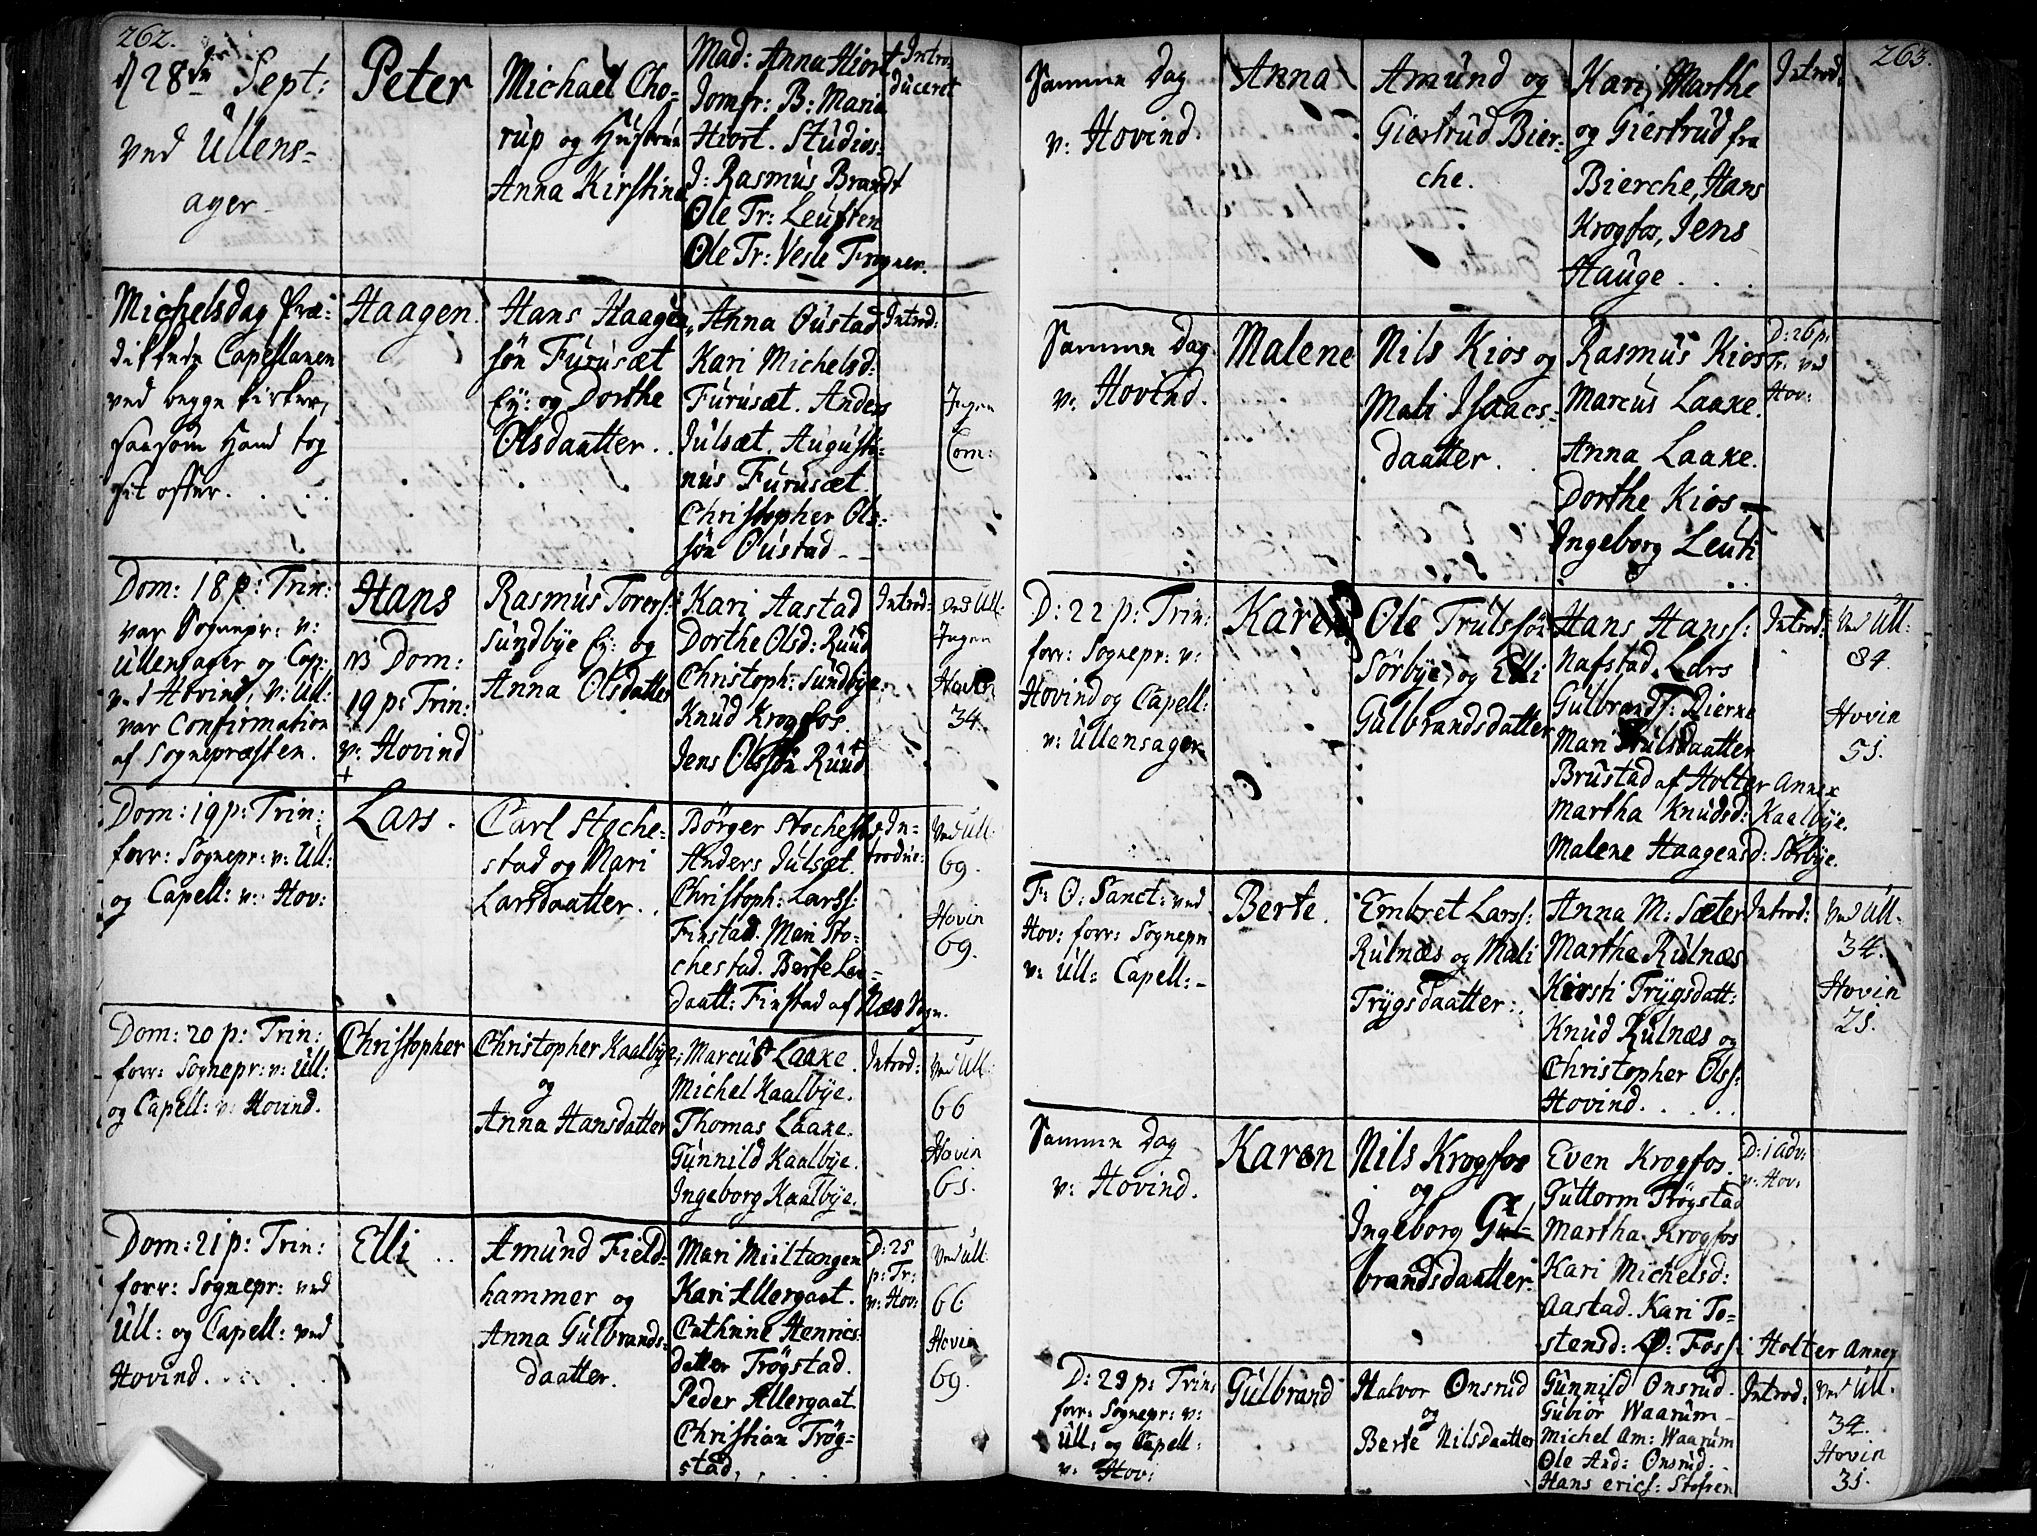 262.
d 28de Sept:
ved Ullens-
ager
Peter
Michael Cho-
rup og Hustrue
Anna Kirstina
Mad: Anna Hiort
Jomfr: B: Maria
Hiort. Studios:
J: Rasmus Brandt
Ole Tr: Leusten
Ole Tr: Vesle Frogner.
Intro-
duceret
Michelsdag Præ-
dikede Capellanen
ved begge kirker,
saasom Hand tog
sit offer.
Haagen.
Hans Haagen
søn Furusæt
Ey: og Dorthe
Olsdaatter.
Anna Oustad
Kari Michelsd:
Furusæt. Anders
Julsæt. Augusti-
nus Furusæt.
Christopher Ols-
søn Oustad
Introd:
Ingen
Com:
Dom: 18 p: Trin:
var Sognepr: v:
Ullensager og Cap:
v. d Hovind, v: Ull:
var Confirmation
af Sognepræsten.
Hans
NB Dom:
19 p: Trin:
v: Hovind
+
Rasmus Torers:
Sundbye Ey: og
Anna Olsdatter
Kari Aastad
Dorthe Olsd: Ruud
Christoph: Sundbye
Knud Krogfos.
Jens Olssøn Ruud
Introd:
ved Ull:
Ingen
Hovin
34.
Dom: 19 p: Trin:
forr: Sognepr: v: Ull:
og Capell: v: Hov:
Lars.
Carl Stoche-
stad og Mari
Larsdaatter.
Børger Stochesta
Anders Julsæt.
Christoph: Larss:
Finstad. Mari Sto-
chestad. Berte Lar-
daatt: Finstad af Næs Sogn.
In-
troduc:
Ved Ull:
69.
Hovin
69.
Dom: 20 p: Trin:
forr: Sognepr: v: Ull:
og Capell: v: Hovind.
Christopher
Christopher Kaalbye,
og
Anna Hansdatter
Marcus Laake.
Michel Kaalbye.
Thomas Laake.
Gunnild Kaalbye.
Ingeborg Kaalbye.
Introd:
Ved Ull:
66
Hovin
65.
Dom: 21 p: Trin:
forr: Sognepr: ved
Ull: og Capell: ved
Hovind.
Elli
Amund Field-
hammer og
Anna Gulbrands-
daatter.
Mari Miiltangen
Kari Allergaat.
Cathrine Henrics-
datter Trøgstad.
Peder Allergaat
Christian Trøg-
stad,
D: 25
p: Tr:
v: Hov:
Ved Ull:
66
Hovin
69.
263.
Samme Dag
v: Hovind.
Anna
Amund og
Giertrud Bier-
che.
Kari, Marthe
og Giertrud fra
Bierche, Hans
Krogfos, Jens
Hauge
Introd:
Samme Dag
v: Hovind.
Malene
Nils Kios og
Mali Isaacs-
daatter.
Rasmus Kios
Marcus Laake.
Anna Laake.
Dorthe Kios
Ingeborg Leuti
D: 26 p:
Tr: ved
Hov:
D: 22 p: Trin:
forr: Sognepr: v:
Hovind og Capell:
v: Ullensager
Karen
Ole Trulssøn
Sørbye, og Elli
Gulbrandsdatter
Hans Hanss:
Nafstad. Lars
Gulbrands: Dierne
Mari Trulsdaatter
Brustad af Holter Annex
Martha Knudsd: Kaalbye.
Malene Haagensd: Sørbye.
Introd:
Ved Ull:
84.
Hovin
55.
F: O: Sanct: ved
Hov: forr: Sognepr
v: Ull: Capell:
Berte.
Embret Larss:
Rulnæs og Mali
Trygsdaatter:
Anna M: Sæter
Martha Rulnæs
Kirsti Trygsdatt:
Knud Rulnæs og
Christopher Olss:
Hovind.
Introd:
Ved Ull.
34.
Hovin
25.
Samme Dag
v: Hovind.
Karen
Nils Krogfos
og
Ingeborg Gul-
brandsdaatter.
Even Krogfos.
Guttorm Trøgstad
Martha Krogfos
Kari Michelsd:
Aastad. Kari To-
stensd: Foss: Holter Annex
D: 1 adv:
v: Hov:
D: 23 p: Trin:
forr: Sognepr: v:
Ull: og Capell:
v: Hov:
Gulbrand
Halvor Onsrud
og
Berte Nilsdaatter
Gunnild Onsrud.
Gubiør Waarum
Michel Am: Waarum
Ole And: Onsrud.
Hans erics: Stosen
Introd:
Ved Ull.
34.
Hovin
35.